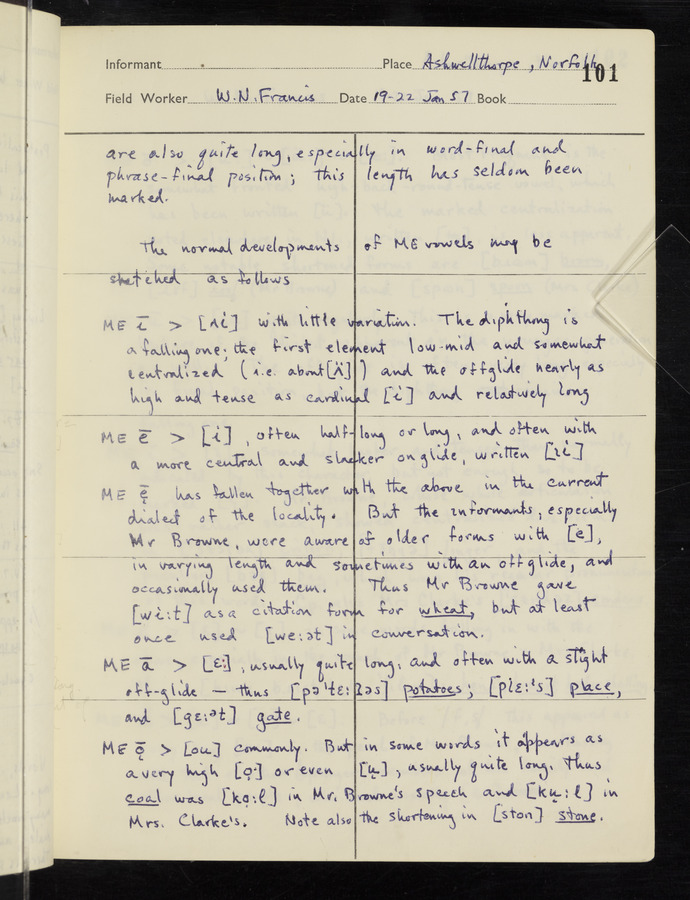 Informant Place Ashwellthorpe, Norfolk
101
Field Worker W.N. Francis Date 19-22 Jan 57 Book
are also quite long, especially in word-final and
phrase-final position; this length has seldom been
marked.
The normal developments of ME vowels may be
sketched as follows
ME ī > [ʌi] with little variation. The diphthong is
a falling one; the first element low-mid and somewhat
centralized (i.e. about [ʌ̈]) and the offglide nearly as
high and tense as cardinal [i] and relatively long
ME ē > [i], often half-long or long, and often with
a more central and slacker onglide, written [ɪi]
ME ę̄ has fallen together with the above in the current
dialect of the locality. But the informants, especially
Mr Browne, were aware of older forms with [e],
in varying length and sometimes with an offglide, and
occasionally used them. Thus Mr Browne gave
[wi:t] as a citation form for wheat, but at least
once used [we:ət] in conversation.
ME ā > [ɛ:], usually quite long, and often with a slight
off-glide — thus potatoes; place,
and [gɛ:ᵊt] gate.
ME ǭ > [ou] commonly. But in some words it appears as
a very high [o̝] or even [u̞], usually quite long. Thus
coal was [ko̝:ł] in Mr. Browne's speech and [ku̞:ł] in
Mrs. Clarke's. Note also the shortening in [ston] stone.